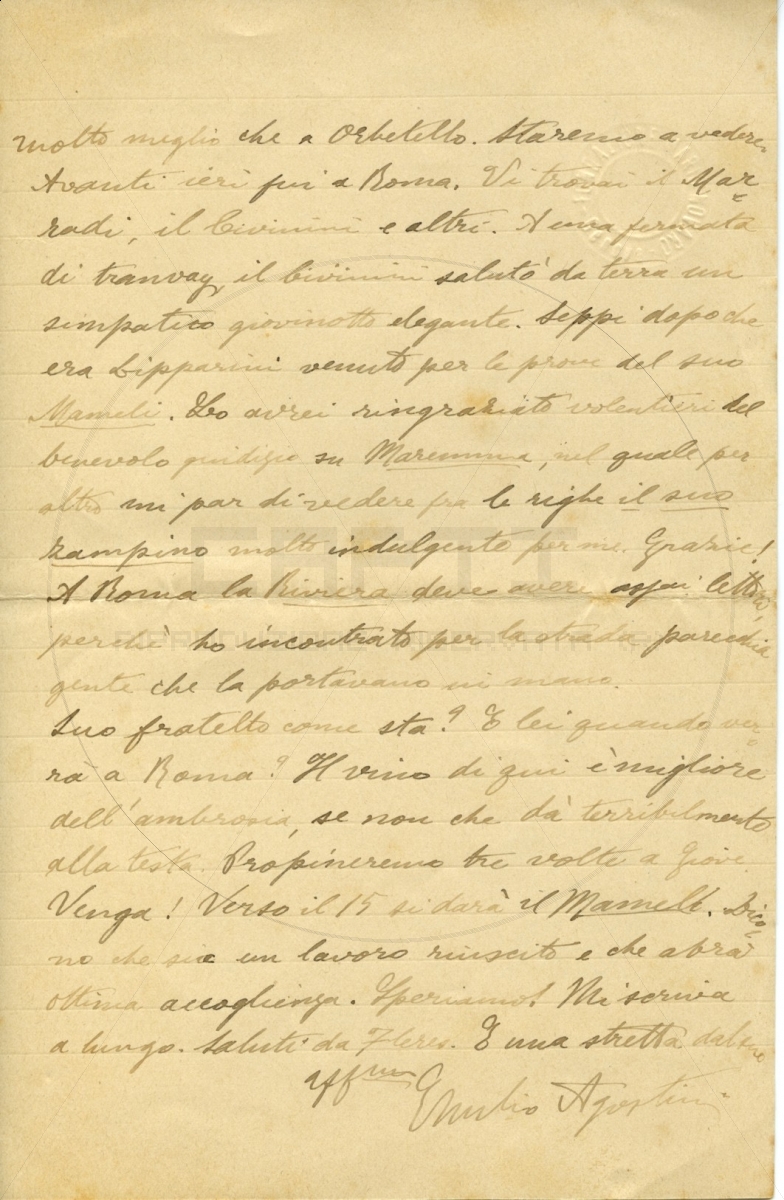 molto meglio che a Orbetello. Staremo a vedere.
Avanti ieri fui a Roma. Vi trovai il Mar-
radi, il Civinini e altri. A una fermata
di tranvay, il Civinini salutò da terra un
simpatico giovinotto elegante. Seppi dopo che
era Lipparini venuto per le prove del suo
Mameli. Lo avrei ringraziato volentieri del
benevolo giudizio su Maremma, nel quale per
altro mi par di vedere fra le righe il suo
zampino molto indulgente per me. Grazie!
A Roma la Riviera deve avere assai lettori,
perchè ho incontrato per la strada parecchia
gente che la portavano in mano.
Suo fratello come sta? E lei quando ver-
rà a Roma? Il vino di qui è migliore
dell'ambrosia, se non che dà terribilmente
alla testa. Propineremo tre volte a Giove.
Venga! Verso il 15 si darà il Mameli. Dico-
no che sia un lavoro riuscito e che abrà
ottima accoglienza. Speriamo! Mi scriva
a lungo. Saluti da Fleres. E una stretta dal suo
aff.mo
Emilio Agostini